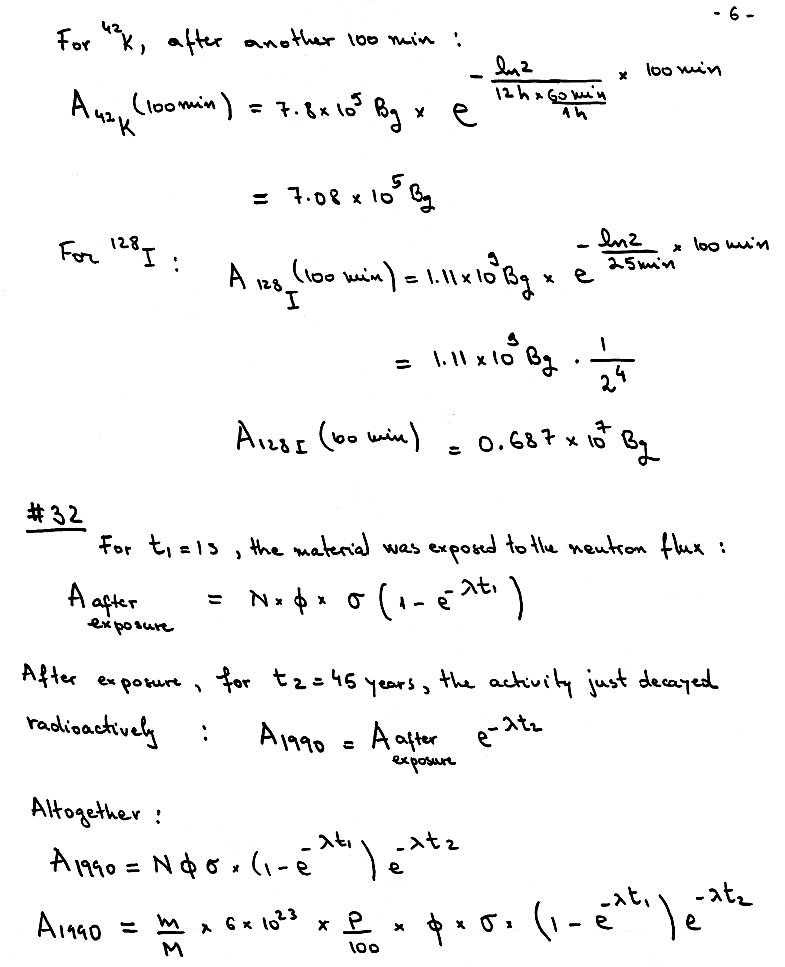 - 6 -
For ⁴²K, after another 100 min :
A ⁴²K (100min) = 7.8 x 10⁵ Bq x e^(- ln2 / (12 h x 60 min / 1h) x 100 min)
= 7.08 x 10⁵ Bq
For ¹²⁸I : A ¹²⁸I (100 min) = 1.11 x 10⁹ Bq x e^(- ln2 / 25min x 100 min)
= 1.11 x 10⁹ Bq · 1 / 2⁴
A ₁₂₈ I (100 min) = 0.687 x 10⁷ Bq
#32
For t₁ = 1s , the material was exposed to the neutron flux :
A after exposure = N x ϕ x σ (1 - e^(-λt₁))
After exposure, for t₂ = 45 years, the activity just decayed
radioactively : A₁₉₉₀ = A after exposure e^(-λt₂)
Altogether :
A₁₉₉₀ = N ϕ σ x (1 - e^(-λt₁)) e^(-λt₂)
A₁₉₉₀ = m / M x 6 x 10²³ x P / 100 x ϕ x σ x (1 - e^(-λt₁)) e^(-λt₂)